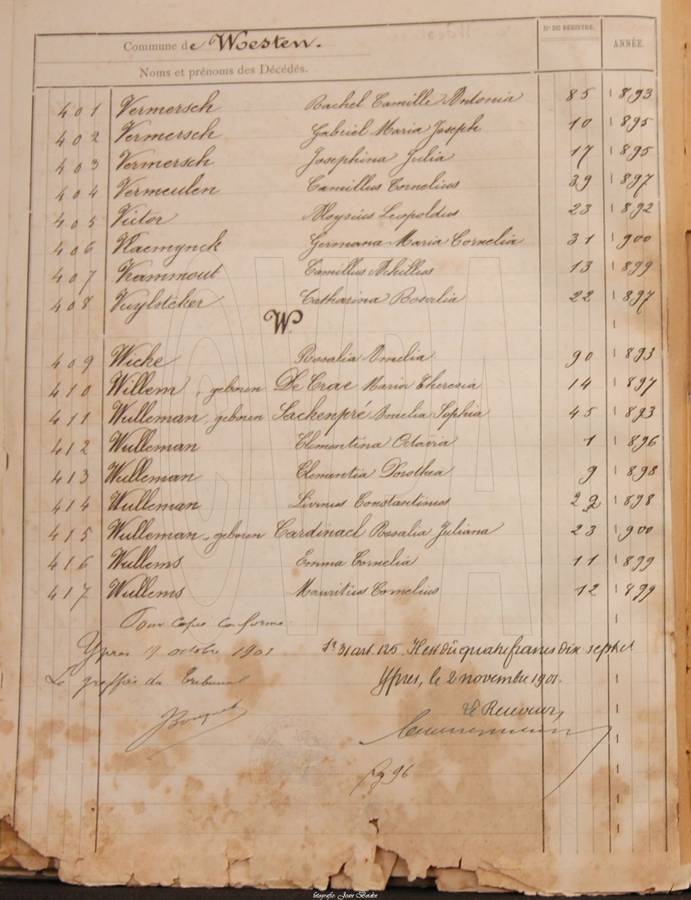 Commune de Woesten. N° DU REGISTRE. ANNÉE.
Noms et prénoms des Décédés.
401 Vermersch Rachel Camille Antonia 85 1893
402 Vermersch Gabriel Maria Joseph 10 1895
403 Vermersch Josephina Julia 17 1895
404 Vermeulen Camillus Cornelius 39 1897
405 Victor Aloysius Leopoldus 23 1892
406 Vlaemynck Germana Maria Cornelia 31 1900
407 Vrammout Camillus Achillus 13 1899
408 Vuylsteker Catharina Rosalia 22 1897
W.
409 Wicke Rosalia Amelia 90 1893
410 Willem, geboren De Crae Maria Theresia 14 1897
411 Wulleman, geboren Sackenpré Amelia Sophia 45 1893
412 Wulleman Clementina Octavia 1 1896
413 Wulleman Clementia Dorothea 9 1898
414 Wulleman Livinus Constantinus 22 1898
415 Wulleman, geboren Cardinael Rosalia Juliana 23 1900
416 Wullems Emma Cornelia 11 1899
417 Wullems Mauritius Cornelius 12 1899
Pour copie conforme
Ypres 7 octobre 1901
Le greffier du Tribunal
art. 125. Het dû quatre francs dix sept ct
Ypres, le 2 novembre 1901.
Le Receveur,
fotografie Joan Bodin